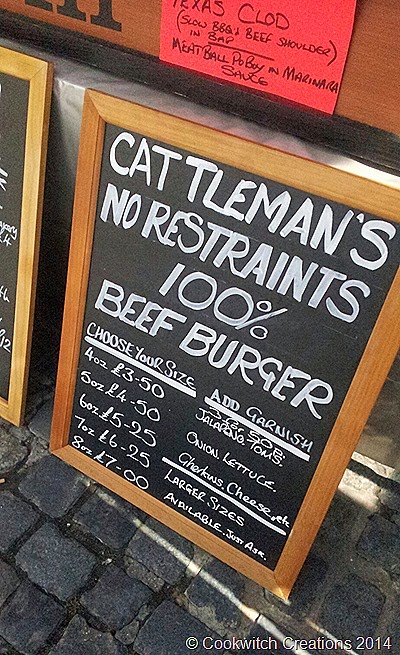 TEXAS CLOD
(SLOW BBQ'd BEEF SHOULDER)
IN BAP
MEATBALL PO BOY IN MARINARA
SAUCE
CATTLEMAN'S
NO RESTRAINTS
100%
BEEF BURGER
CHOOSE YOUR SIZE
4oz £3-50
5oz £4-50
6oz £5-25
7oz £6-25
8oz £7-00
ADD GARNISH
JALAPENO, TOMS.
ONION, LETTUCE.
Gherkins, Cheese, etc
LARGER SIZES
AVAILABLE. JUST ASK.
© Cookwitch Creations 2014